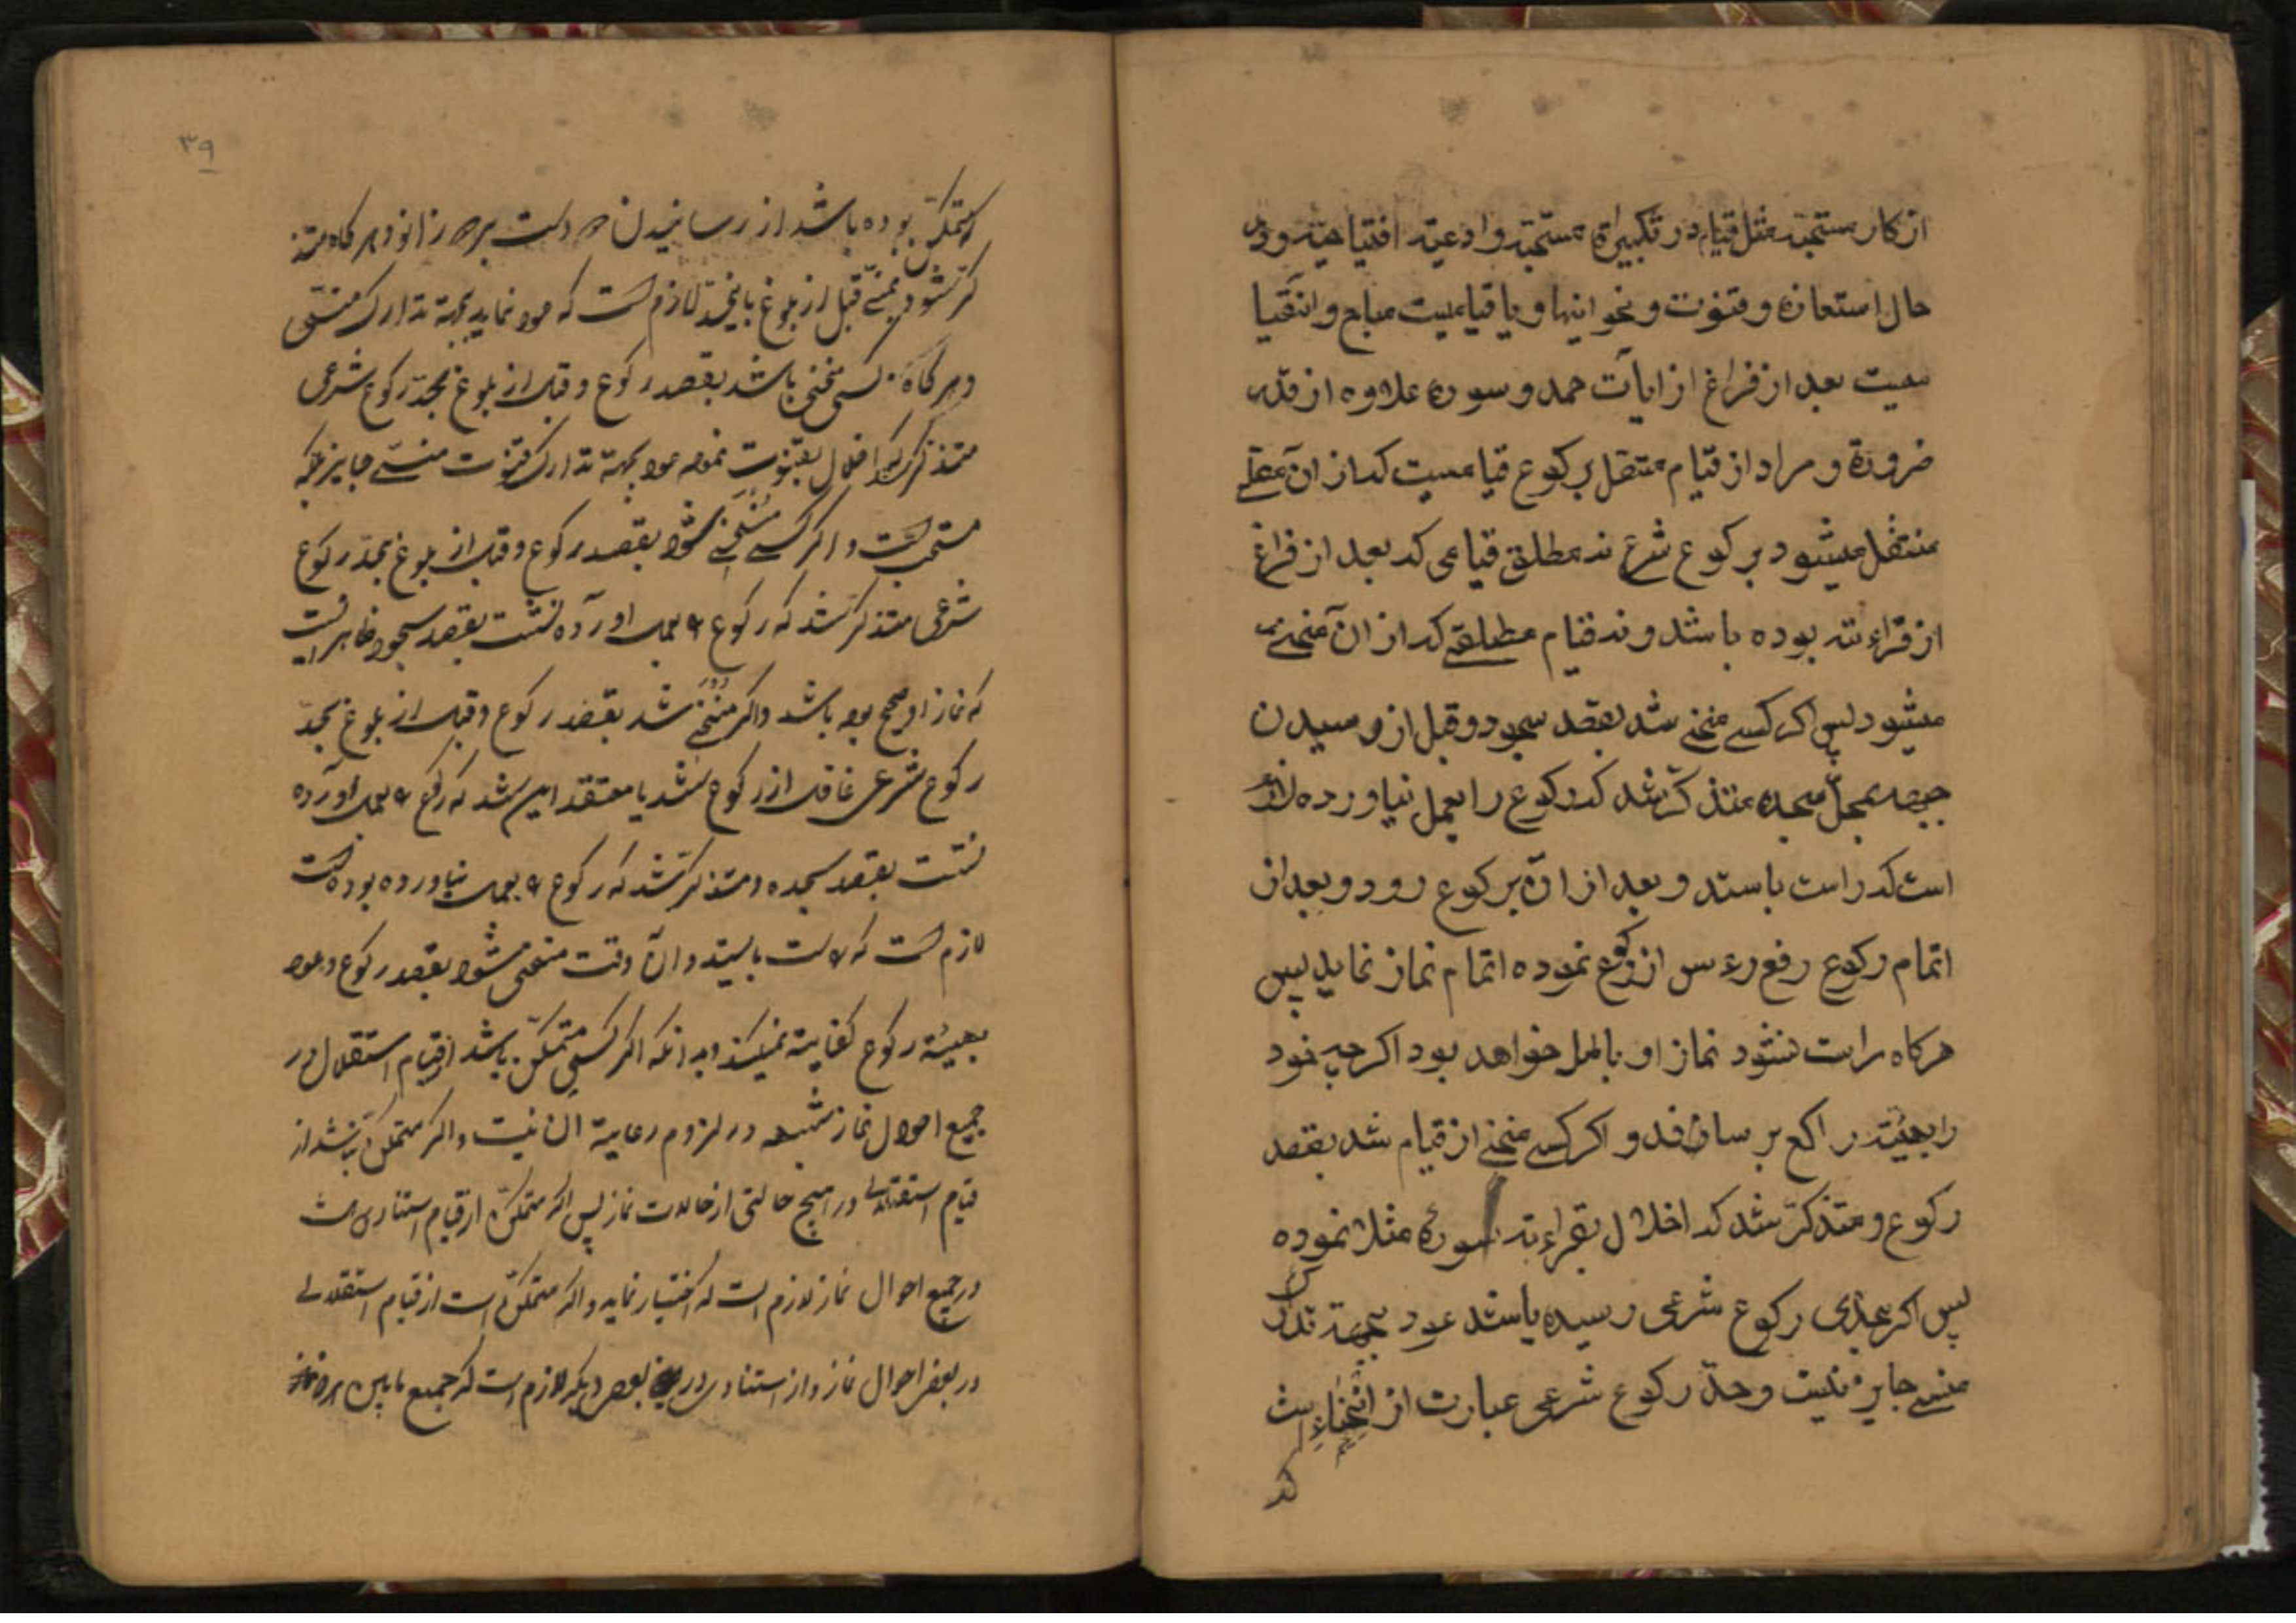 ازكار مستحبّه مثل قيام در تكبيراة مستحبّه و ادعيّه افتتاحيّه و در
حال استعاذه و قنوت و نحو اينها و يا قياميست مباح و ان قيا
ميست بعد از فراغ از ايات حمد و سوره علاوه از قدر
ضرورة و مراد از قيام متصل بركوع قياميست كه از ان مصلّے
منتقل ميشود بركوع شرع نه مطلق قيامى كه بعد از فراغ
از قراءته بوده باشد و نه قيام مطلقے كه از ان منحنے
ميشود پس اكر كسے منحنے شد بقصد سجود و قبل از رسيدن
جبهه بمحلّ سجده متذكّر شد كه ركوع را بعمل نياورده لازم
است كه راست باستد و بعد از ان بركوع رود و بعد از
اتمام ركوع رفع رءس از ركوع نموده اتمام نماز نمايد پس
هركاه راست نشود نماز او باطل خواهد بود اكرچه خود
را بهيئة راكع برساند و اكر كسے منحنے از قيام شد بقصد
ركوع و متذكّر شد كه اخلال بقراءته سوره مثلا نموده
پس اكر بحدّى ركوع شرعى رسيده باشد عود بجهة تدارك
منسے جايز نيست و حدّ ركوع شرعى عبارت از انحناء است
كه
٣٩
متمكّن بوده باشد از رسانيدن دست بر زانو و هركاه متذ
كّر شود بمنسے قبل از بلوغ باينحدّ لازم است كه عود نمايد بجهة تدارك منسى
و هركاه كسى منحنى باشد بقصد ركوع و قبل از بلوغ بحدّ ركوع شرعى
متذكّر اخلال بقنوت نموده عود بجهة تدارك قنوت منسے جايز بلكه
مستحبّ است و اكر كسے منحنے شود بقصد ركوع و قبل از بلوغ بحدّ ركوع
شرعى متذكّر شد كه ركوع را بعمل اورده نشست بقصد سجود ظاهر اينست
كه نماز او صحيح بوده باشد و اكر منحنے شد بقصد ركوع و قبل از بلوغ بحدّ
ركوع شرعى غافل از ركوع شد يا معتقد اين شد كه ركوع را بعمل اورده
نشست بقصد سجده و متذكّر شد كه ركوع را بعمل نياورده بوده است
لازم است كه راست بايستد و ان وقت منحنى شود بقصد ركوع و عود
بهيئة ركوع كفاية نميكند بدانكه اكر كسى متمكّن باشد از قيام استقلال در
جميع احوال نماز شبهه در لزوم رعاية ان نيست و اكر متمكّن نباشد از
قيام استقلالى در هيچ حالتى از حالات نماز پس اكر متمكّن از قيام استنادى است
در جميع احوال نماز لازم است كه اختيار نمايد و اكر متمكّن است از قيام استقلالے
در بعض احوال نماز و از استنادى در بعض ديكر لازم است كه جميع مابين